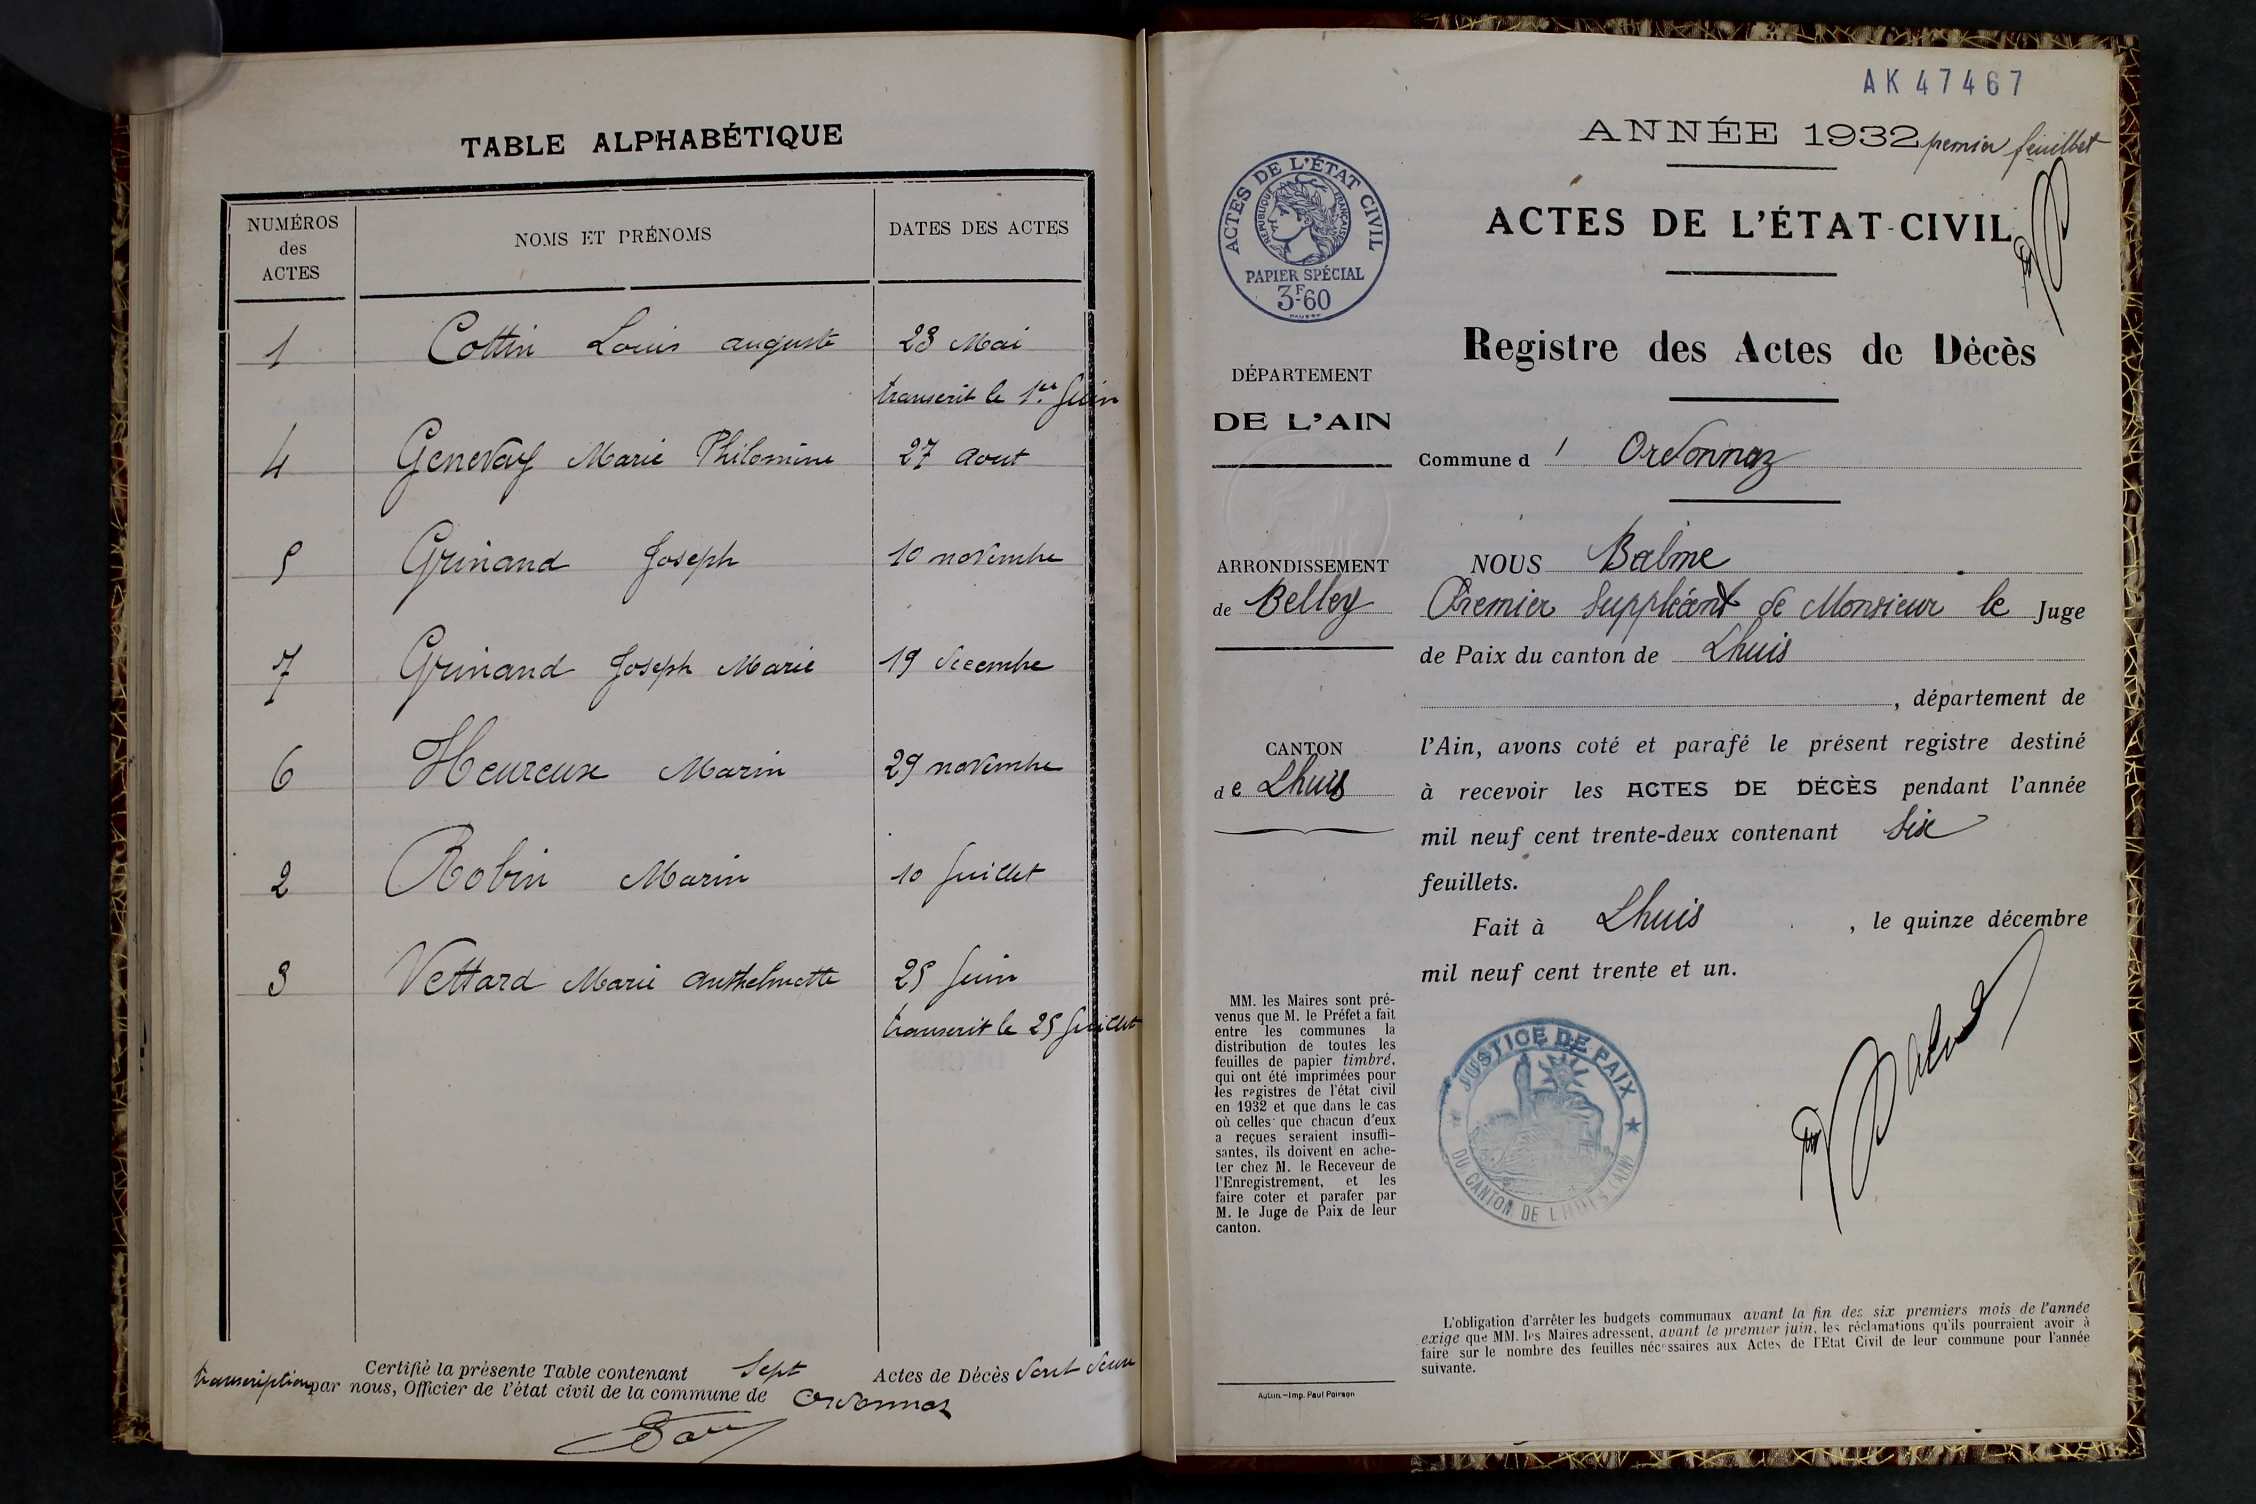 TABLE ALPHABÉTIQUE
NUMÉROS des ACTES NOMS ET PRÉNOMS DATES DES ACTES
1 Cottin Louis auguste 23 Mai
transcrit le 1er Juin
4 Genevay Marie Philomine 27 Aout
5 Grinand Joseph 10 novembre
7 Grinand Joseph Marie 19 decembre
6 Heureux Marin 29 novembre
2 Robin Marin 10 Juillet
3 Vettard Marie anthelmette 25 Juin
transcrit le 25 Juillet
Certifié la présente Table contenant Sept Actes de Décès dont deux
transcription par nous, Officier de l'état civil de la commune de Ordonnaz
AK 47467
ANNÉE 1932 premier feuillet
ACTES DE L'ÉTAT CIVIL
RÉPUBLIQUE FRANÇAISE
PAPIER SPÉCIAL
3F60
ACTES DE L'ÉTAT-CIVIL
Registre des Actes de Décès
DÉPARTEMENT
DE L'AIN
Commune d' Ordonnaz
ARRONDISSEMENT
de Belley
CANTON
de Lhuis
NOUS Balme
Premier Suppléant de Monsieur le Juge
de Paix du canton de Lhuis
, département de
l'Ain, avons coté et parafé le présent registre destiné
à recevoir les ACTES DE DÉCÈS pendant l'année
mil neuf cent trente-deux contenant Six
feuillets.
Fait à Lhuis, le quinze décembre
mil neuf cent trente et un.
MM. les Maires sont pré-
venus que M. le Préfet a fait
entre les communes la
distribution de toutes les
feuilles de papier timbré,
qui ont été imprimées pour
les registres de l'état civil
en 1932 et que dans le cas
où celles que chacun d'eux
a reçues seraient insuffi-
santes, ils doivent en ache-
ter chez M. le Receveur de
l'Enregistrement, et les
faire coter et parafer par
M. le Juge de Paix de leur
canton.
JUSTICE DE PAIX
DU CANTON DE LHUIS (AIN)
Balme
L'obligation d'arrêter les budgets communaux avant la fin des six premiers mois de l'année
exige que MM. les Maires adressent, avant le premier juin, les réclamations qu'ils pourraient avoir à
faire sur le nombre des feuilles nécessaires aux Actes de l'Etat Civil de leur commune pour l'année
suivante.
Autun.-Imp. Paul Poirson